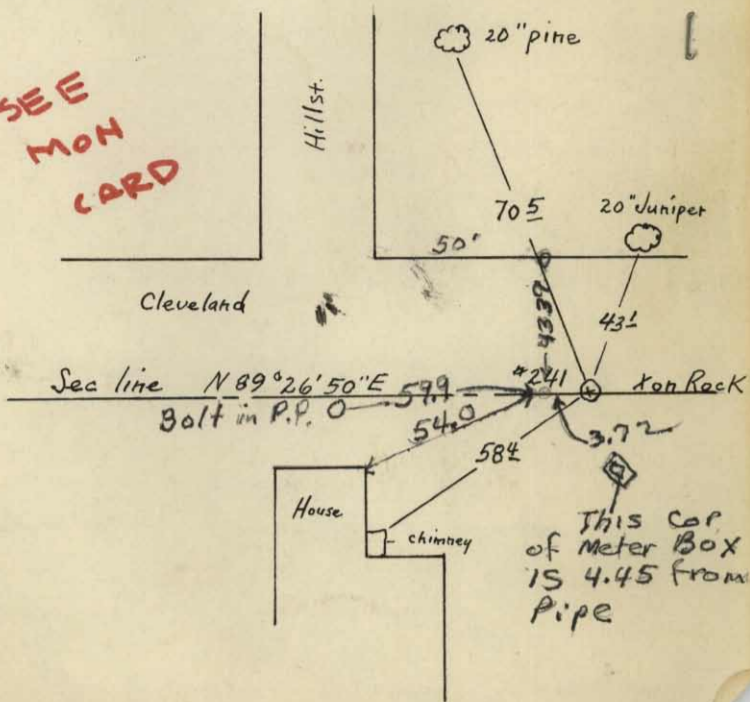 SEE
MON
CARD
Hill st.
20" pine
70 5
20" Juniper
50'
Cleveland
43.32
43 1
Sec line N 89°26'50"E 59.9 #241 X on Rock
Bolt in P.P.
54.0
3.72
58 4
House
chimney
This Cor
of Meter Box
is 4.45 from
Pipe